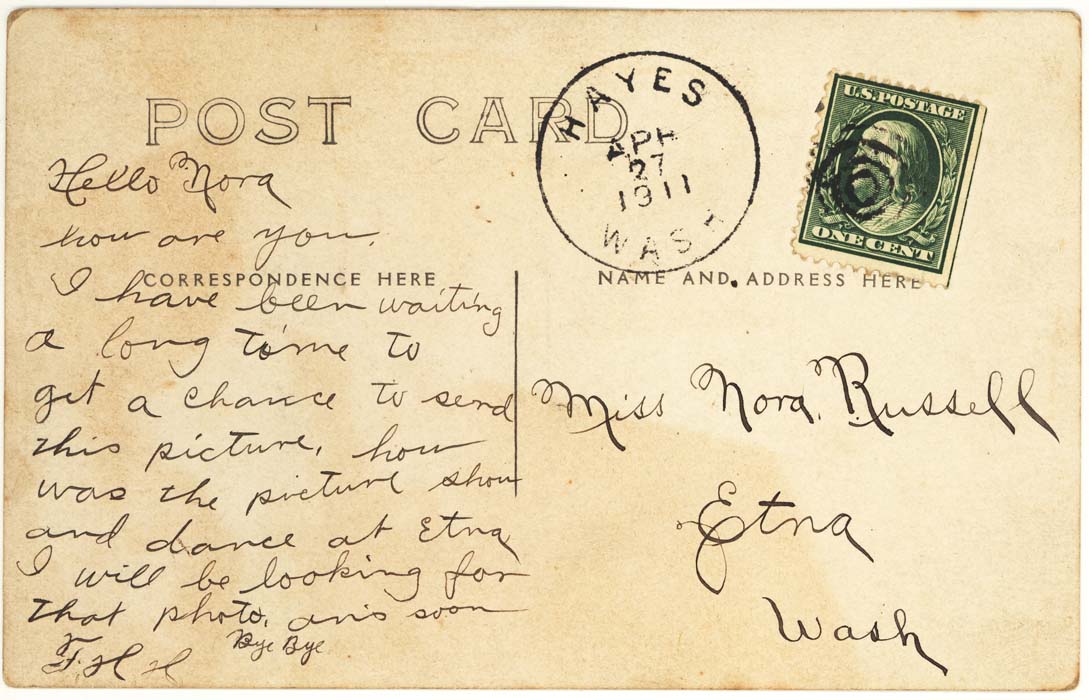 POST CARD
HAYES
APR
27
1911
WASH
U.S. POSTAGE
ONE CENT
Hello Nora
how are you.
CORRESPONDENCE HERE
I have been waiting
a long time to
get a chance to send
this picture, how
was the picture show
and dance at Etna
I will be looking for
that photo, ans soon
Bye Bye
F. H H
NAME AND ADDRESS HERE
Miss Nora Russell
Etna
Wash